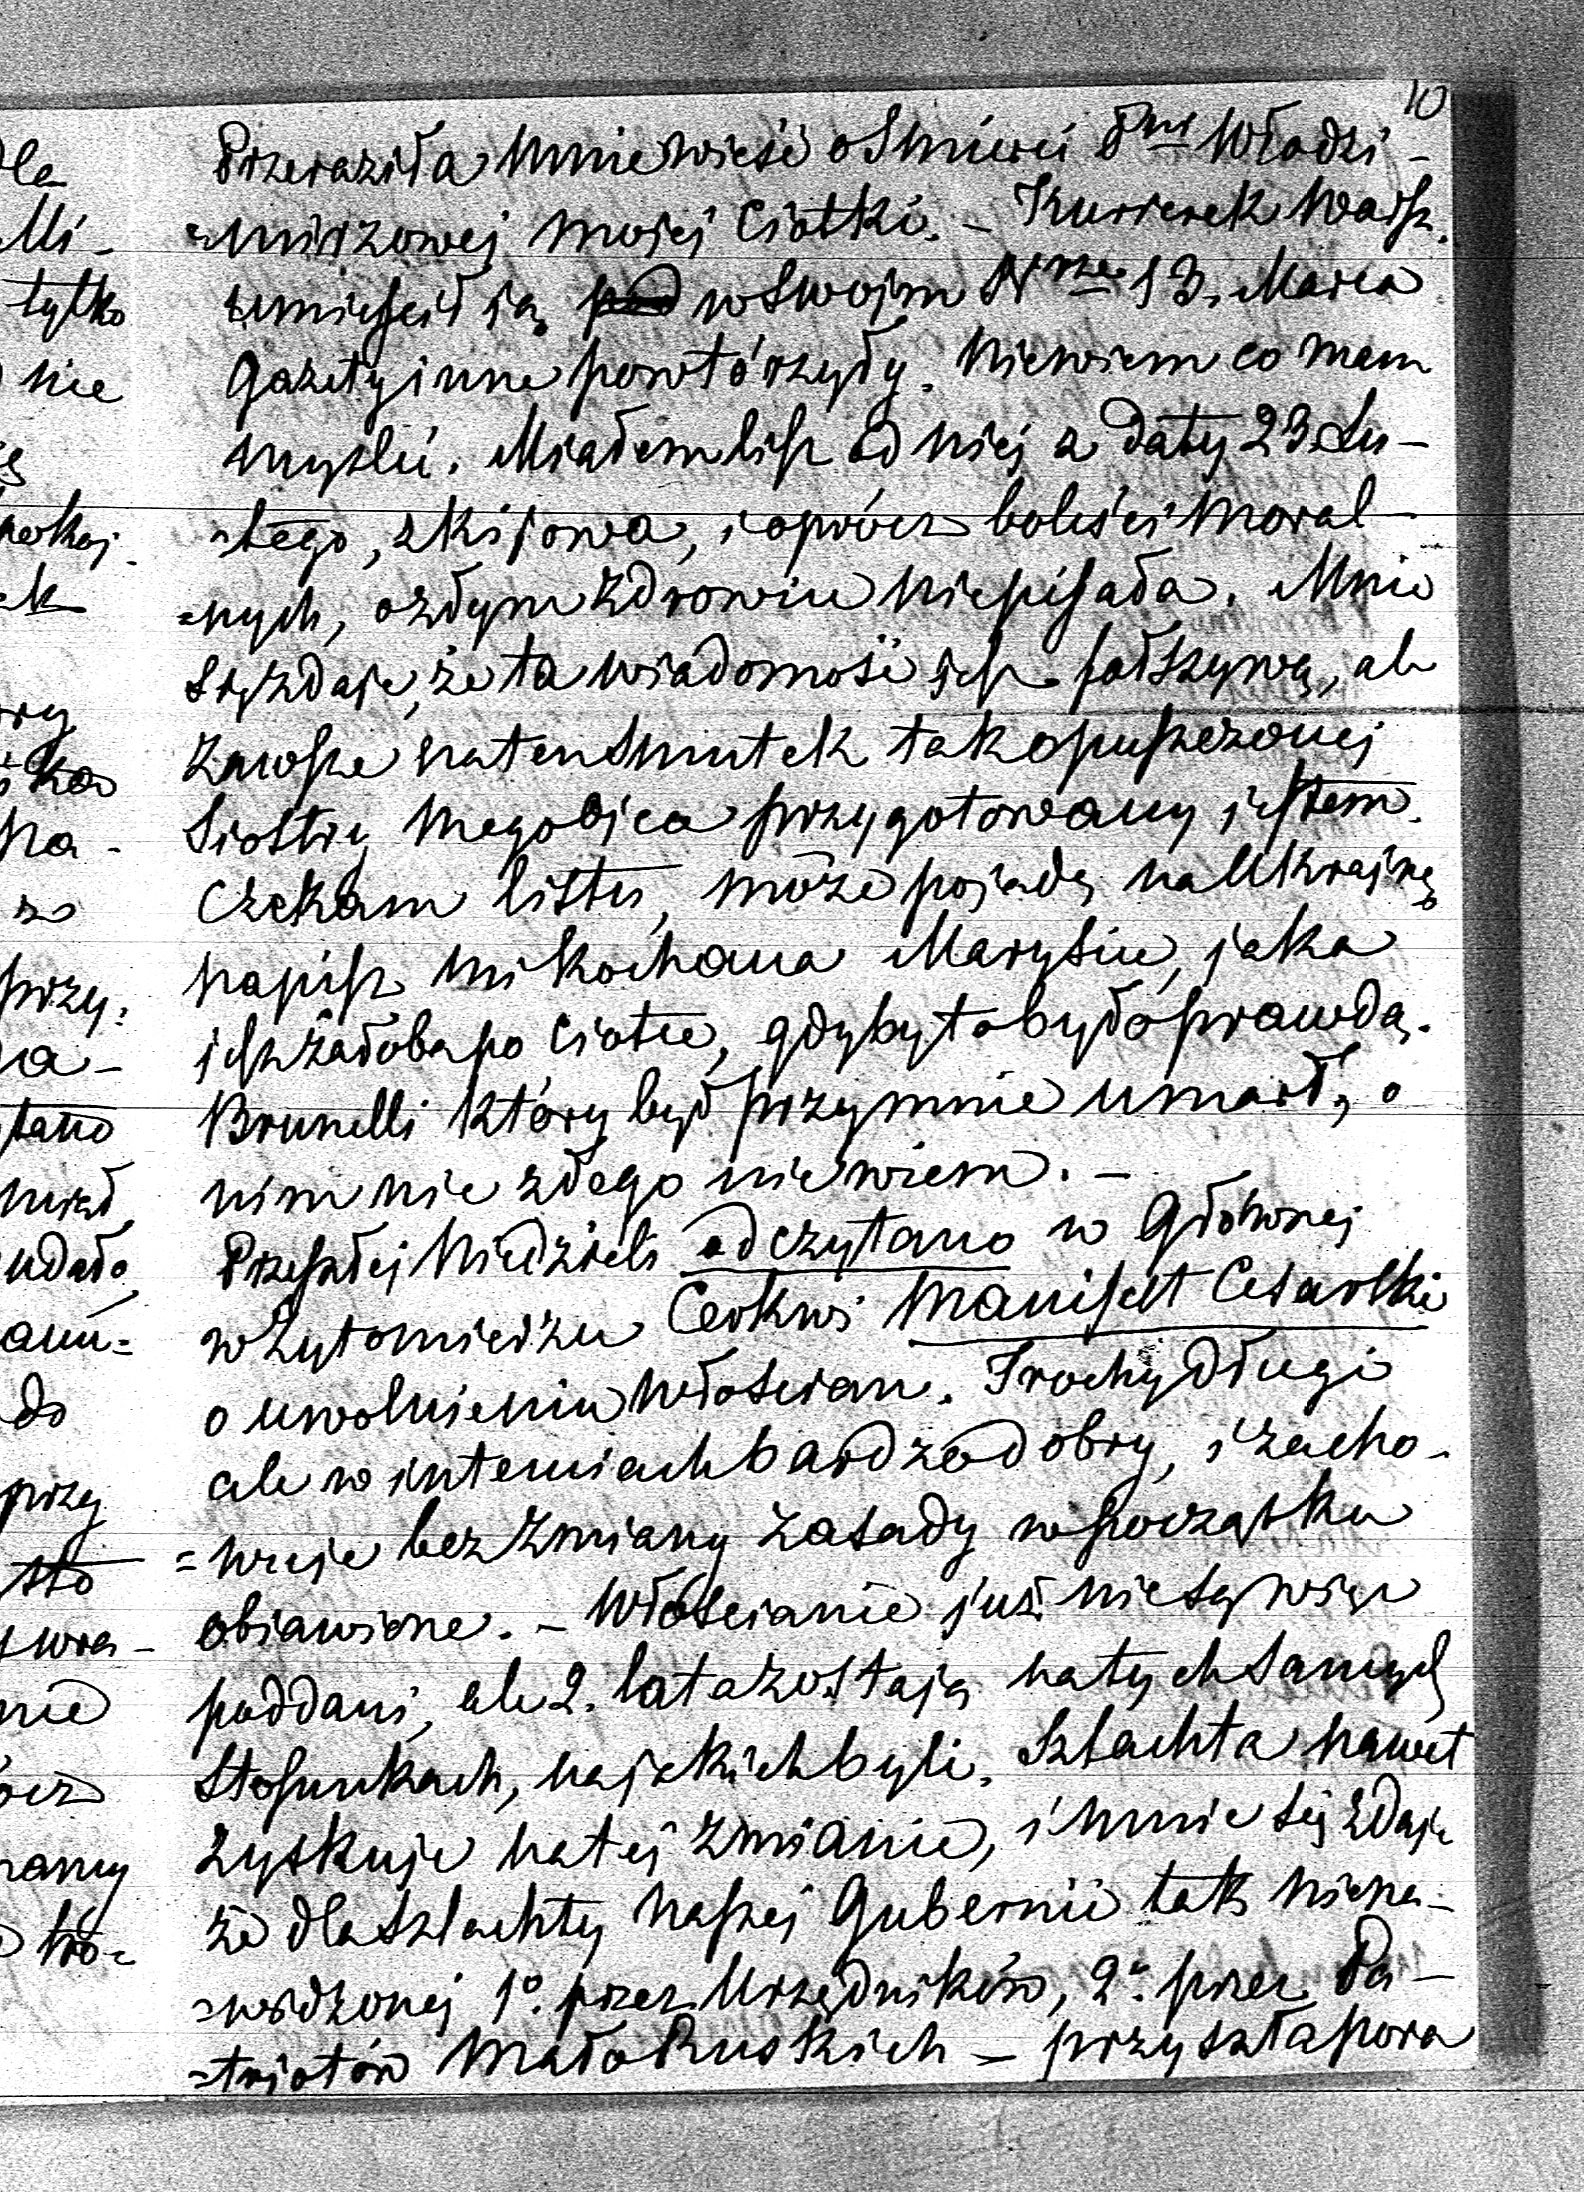 10
Przeraziła mnie wieść o Śmierci Pni Włodzi-
=mirzowej mojej Ciotki. – Kurierek Warsz.
umieścił ją w Swojim Nrze 13. Marca
Gazety inne powtórzyły. Niewiem co mam
myslić. Miałem list od niej z daty 23 Lu-
=tego, z Kijowa, i oprócz boleści moral-
=nych, o złym zdrowiu niepisała. Mnie
się zdaje, że ta wiadomość jest fałszywą, ale
zawsze na ten Smutek tak opuszczonej
Siostry mego ojca przygotowany jestem.
Czekam listu, może pojadę na Ukrajnę
napisz mi kochana Marysiu, jaka
jest żałoba po Ciotce, gdyby to było prawdą.
Brunelli który był przy mnie umarł, o
nim nic złego niewiem. –
Przeszłej Niedzieli odczytano w Głownej
w Żytomierzu Cerkwi Manifest Cesarski
o uwolnieniu włoscian. Trochę długi
ale w intenciach bardzo dobry, i zacho-
=wuje bez zmiany zasady w początku
objawione. – Włościanie już nie są więc
poddani, ale 2. lata zostają na tych samych
Stosunkach, na jakich byli. Szlachta nawet
zyskuje na tej zmianie, i mnie się zdaje
że dla szlachty naszej Gubernii tak niena-
=widzonej 1o. przez Urzędników, 2o. przez Pa-
=triotów MałoRuskich – przyszła pora